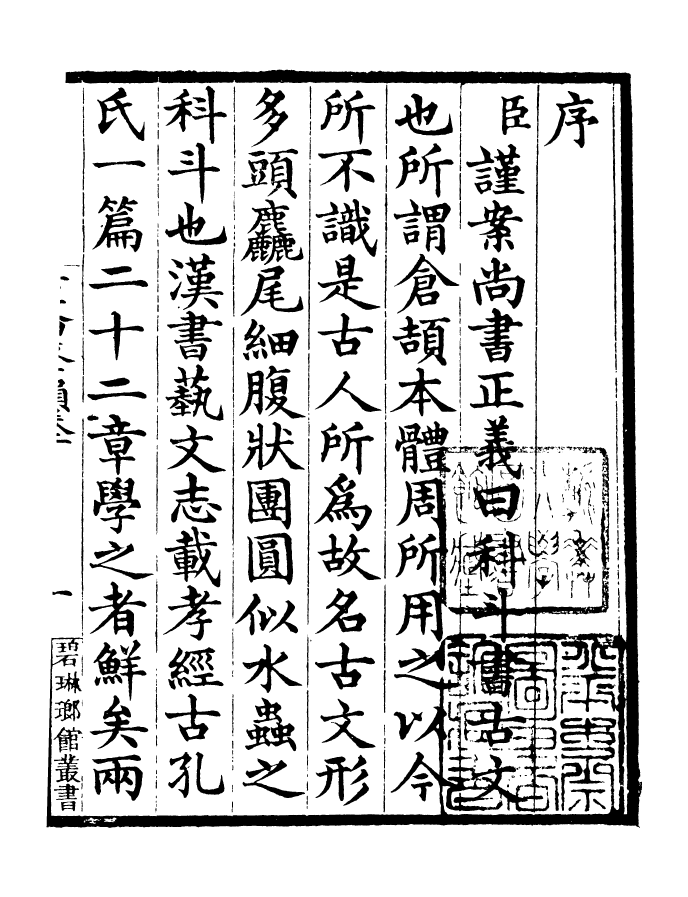 序
臣謹案尚書正義曰科斗書古文
也所謂倉頡本體周所用之以今
所不識是古人所爲故名古文形
多頭麤尾細腹狀團圓似水蟲之
科斗也漢書藝文志載孝經古孔
氏一篇二十二章學之者鮮矣兩
一
碧琳瑯館叢書